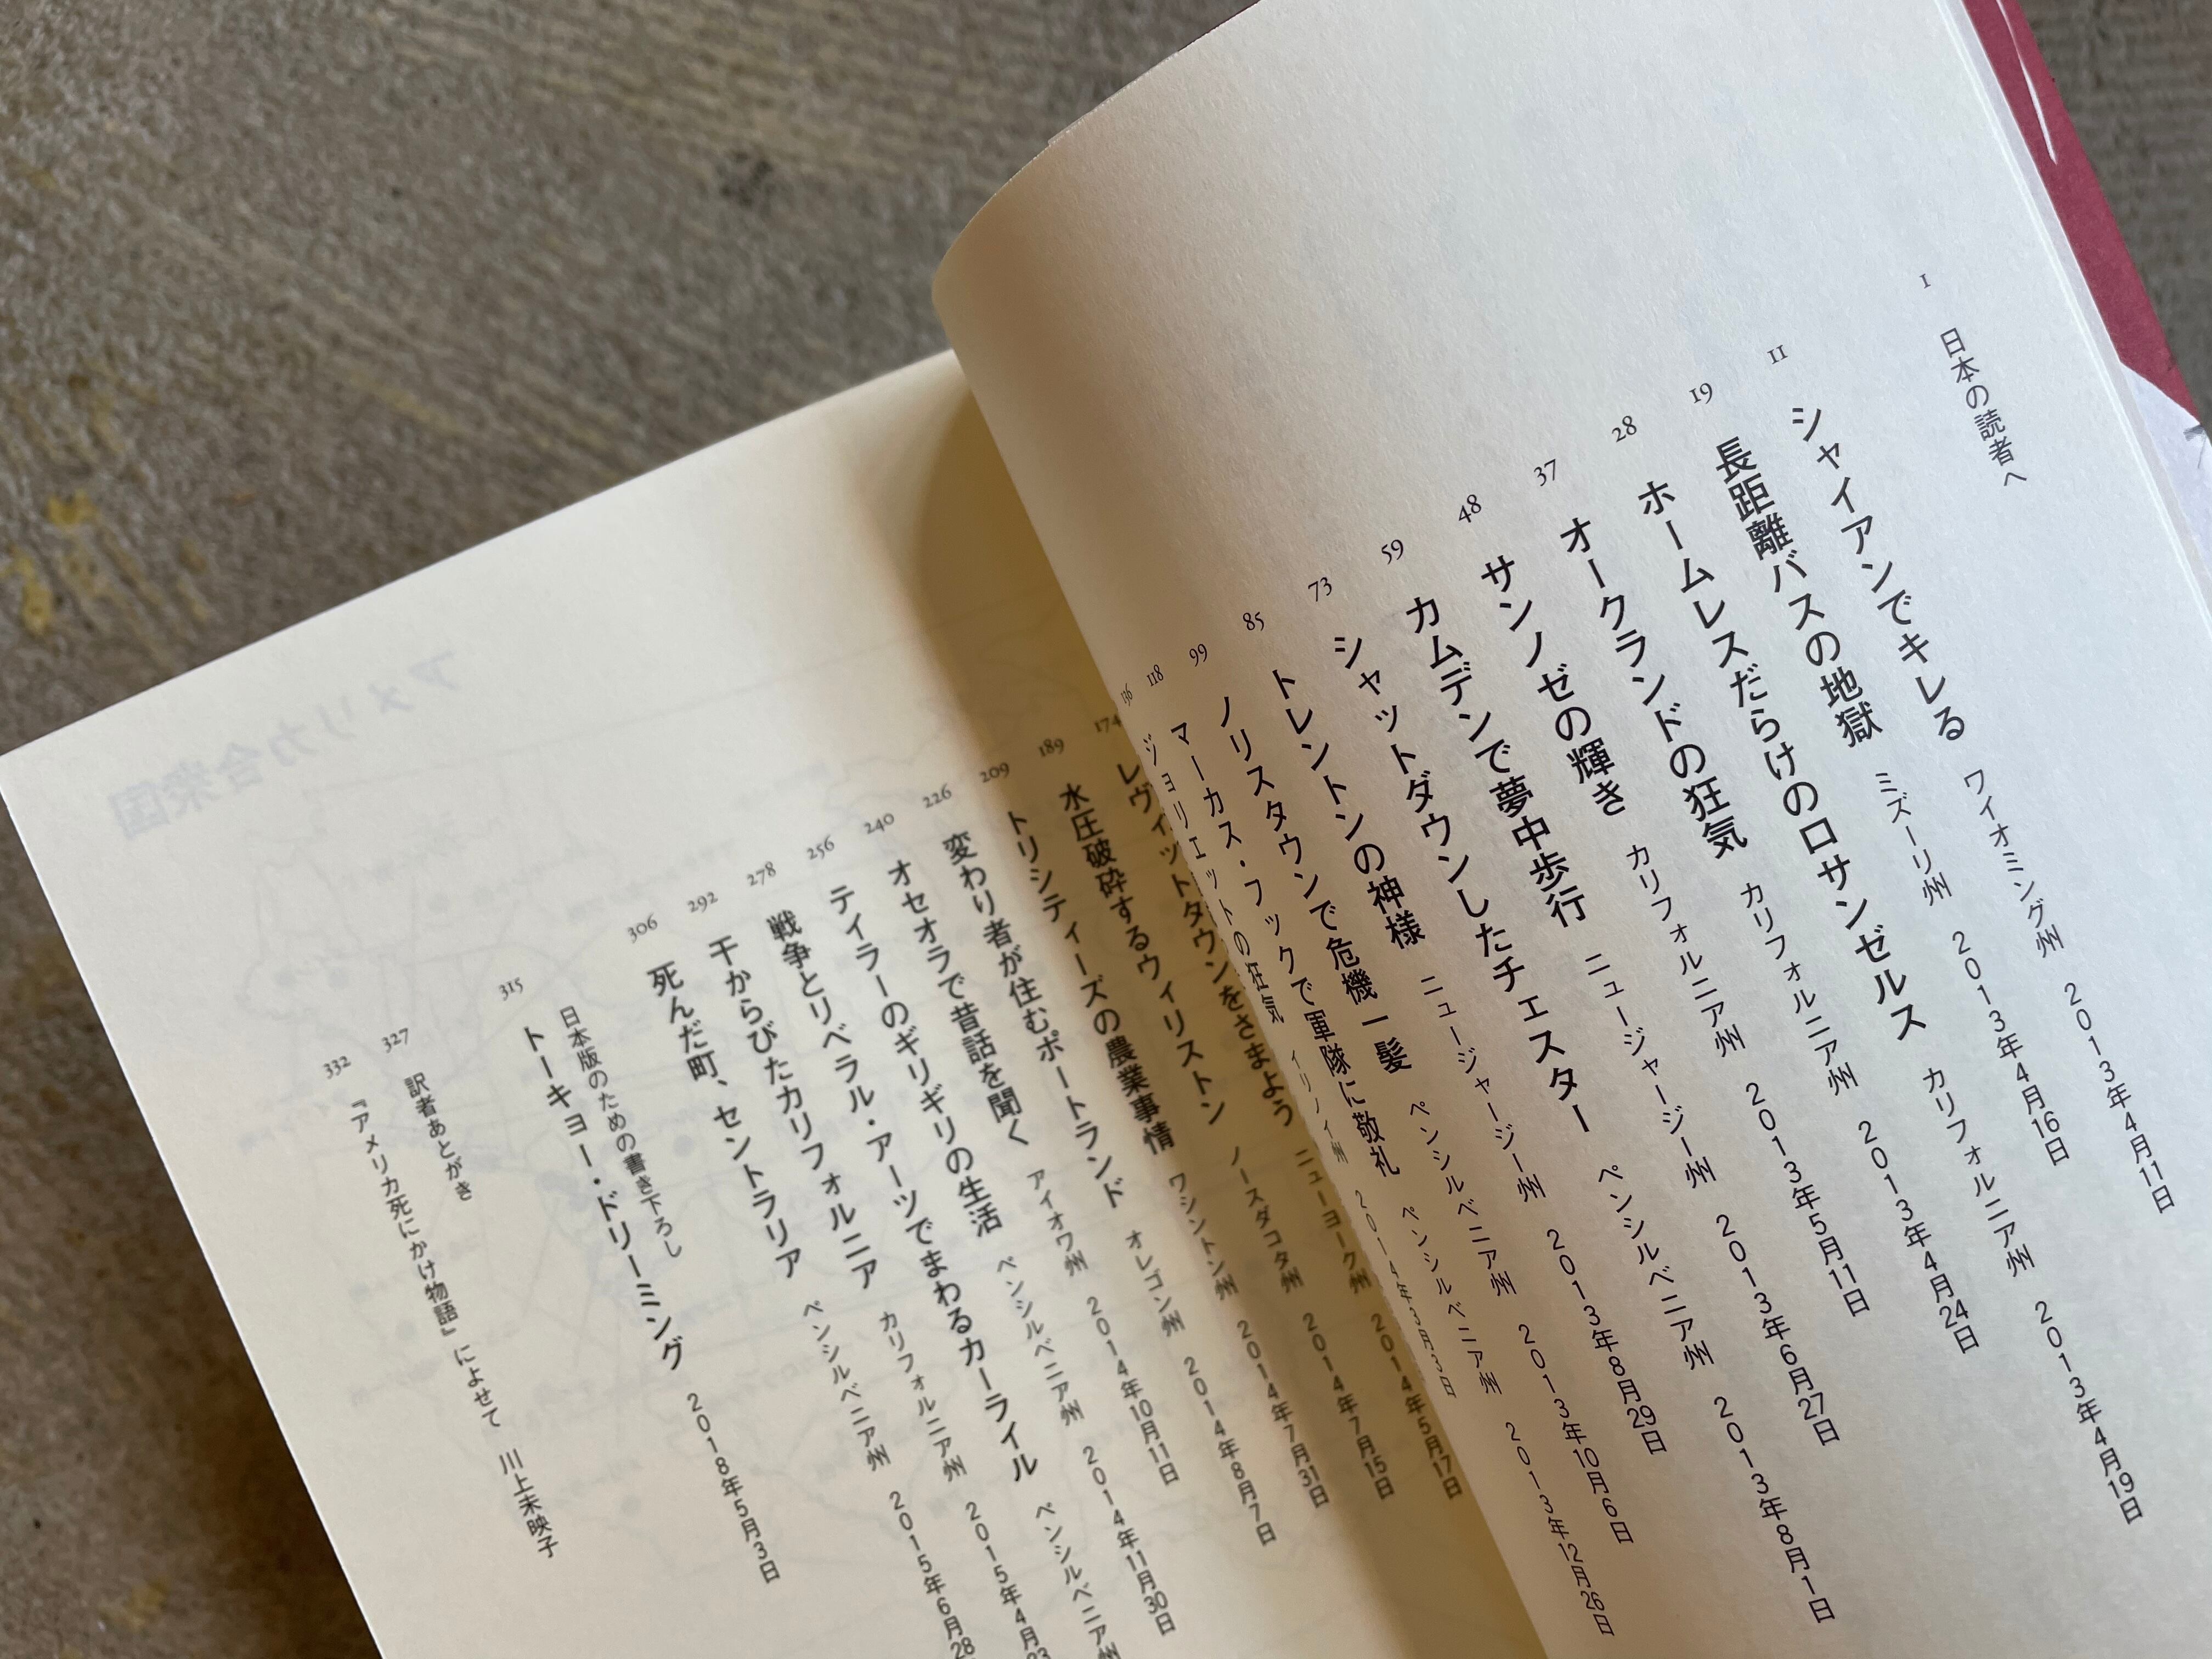 1 日本の読者へ
11 シャイアンでキレる ワイオミング州 2013年4月11日
19 長距離バスの地獄 ミズーリ州 2013年4月16日
28 ホームレスだらけのロサンゼルス カリフォルニア州 2013年4月19日
37 オークランドの狂気 カリフォルニア州 2013年4月24日
48 サンノゼの輝き カリフォルニア州 2013年5月11日
59 カムデンで夢中歩行 ニュージャージー州 2013年6月27日
73 シャットダウンしたチェスター ペンシルベニア州 2013年8月1日
85 トレントンの神様 ニュージャージー州 2013年8月29日
99 ノリスタウンで危機一髪 ペンシルベニア州 2013年10月6日
118 マーカス・フックで軍隊に敬礼 ペンシルベニア州 2013年12月26日
136 ジョリエットの狂気 イリノイ州 2014年3月3日
174 レヴィットタウンをさまよう ニューヨーク州 2014年5月17日
189 水圧破砕するウィリストン ノースダコタ州 2014年7月15日
209 トリシティーズの農業事情 ワシントン州 2014年7月31日
226 変わり者が住むポートランド オレゴン州 2014年8月7日
240 オセオラで昔話を聞く アイオワ州 2014年10月11日
256 テイラーのギリギリの生活 ペンシルベニア州 2014年11月30日
278 戦争とリベラル・アーツでまわるカーライル ペンシルベニア州
292 干からびたカリフォルニア カリフォルニア州 2015年4月23
306 死んだ町、セントラリア ペンシルベニア州 2015年6月28
日本版のための書き下ろし
315 トーキョー・ドリーミング 2018年5月3日
327 訳者あとがき
332 『アメリカ死にかけ物語』によせて 川上未映子
アメリカ合衆国